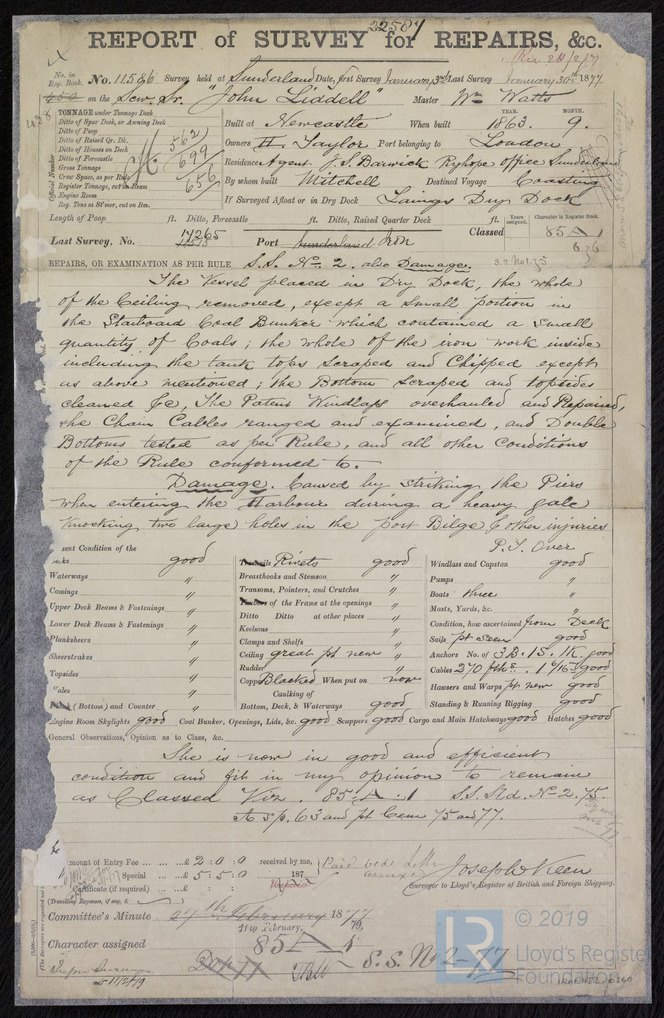 22584
REPORT of SURVEY for REPAIRS, &c.
No. in Reg. Book. No. 11586 Survey held at Sunderland Date, first Survey January 3rd Last Survey January 30th 1877
on the Scw. Sr. "John Liddell" Master Wm Watts
TONNAGE under Tonnage Deck
Ditto of Spar Deck, or Awning Deck
Ditto of Poop
Ditto of Raised Qr. Dk.
Ditto of Houses on Deck
Ditto of Forecastle
Gross Tonnage
Crew Space, as per Rule
Register Tonnage, cut on Beam
Engine Room
Reg. Tons as St'mer, cut on Bm.
Official Number
562
699
656
YEAR. MONTH.
Built at Newcastle When built 1863. 9.
Owners H. Taylor Port belonging to London
Residence Agent J. S. Barwick Ryhope Office Sunderland
By whom built Mitchell Destined Voyage Coasting
If Surveyed Afloat or in Dry Dock Laings Dry Dock
Length of Poop ft. Ditto, Forecastle ft. Ditto, Raised Quarter Deck ft.
Years assigned. Character in Register Book.
Last Survey, No. 14265 Port Sunderland Iron Classed 85 A 1
636
REPAIRS, OR EXAMINATION AS PER RULE S.S. No. 2. also Damage.
The Vessel placed in Dry Dock, the whole
of the Ceiling removed, except a small portion in
the Starboard Coal Bunker which contained a small
quantity of Coals; the whole of the iron work inside
including the tank tops Scraped and Chipped except
as above mentioned; the Bottom Scraped and topsides
cleaned &c, The Patent Windlass overhauled and Repaired,
the Chain Cables ranged and examined, and Double
Bottoms tested as per Rule, and all other Conditions
of the Rule conformed to.
Damage. Caused by striking the Piers
when entering the Harbour during a heavy gale
Knocking two large holes in the port Bilge & other injuries
P.T. Over
sent Condition of the
ecks good
Waterways "
Comings "
Upper Deck Beams & Fastenings "
Lower Deck Beams & Fastenings "
Planksheers "
Sheerstrakes "
Topsides "
Wales "
(Bottom) and Counter "
Rivets good
Breasthooks and Stemson "
Transoms, Pointers, and Crutches "
of the Frame at the openings "
Ditto Ditto at other places "
Keelsons "
Clamps and Shelfs "
Ceiling great pt new "
Rudder "
Copp Blacked When put on now
Caulking of
Bottom, Deck, & Waterways good
Windlass and Capstan good
Pumps "
Boats three "
Masts, Yards, &c. "
Condition, how ascertained from Deck
Sails pt seen good
Anchors No. of 3B. 1S. 1K. good
Cables 270 fths. 1 6/16 good
Hawsers and Warps pt new good
Standing & Running Rigging good
Engine Room Skylights good Coal Bunker, Openings, Lids, &c. good Scuppers good Cargo and Main Hatchways good Hatches good
General Observations, Opinion as to Class, &c.
She is now in good and efficient
condition and fit in my opinion to remain
as Classed Viz. 85 A 1 S.S. Sld. No 2. 75.
mount of Entry Fee ... ... ...£ 2 : 0 : 0 received by me,
Special ... ...£ 5 : 5 : 0 187
Certificate (if required) ... £ : :
(Travelling Expenses, if any, £ )
Joseph Keen
Surveyor to Lloyd's Register of British and Foreign Shipping.
Committee's Minute 1877
Character assigned 85 A 1
S.S. No 2-77
© 2019
LR
Lloyd's Register
Foundation